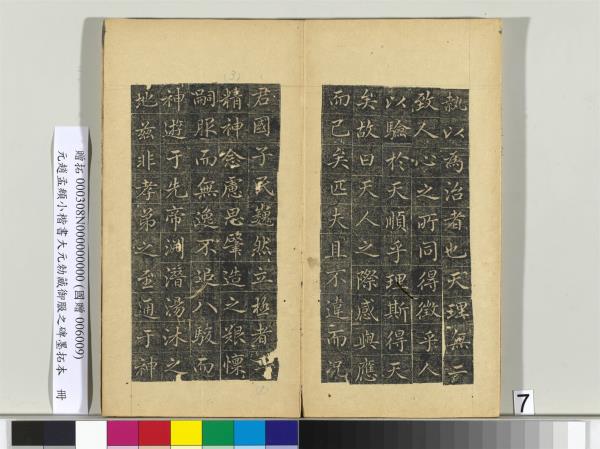 執以為治者也天理無二
致人心之所同得徵乎人
以驗於天順乎理斯得天
矣故曰天人之際感與應
而已矣匹夫且不違而況
君國子民巍然立極者
精神念慮思肇造之艱懍
嗣服而無逸不追八駿而
神遊于先帝淵潛湯沐之
地茲非孝弟之至通于神
(3)
贈拓 000308N000000000 (國贈 006009)
元趙孟頫小楷書大元勅藏御服之碑墨拓本 冊
7